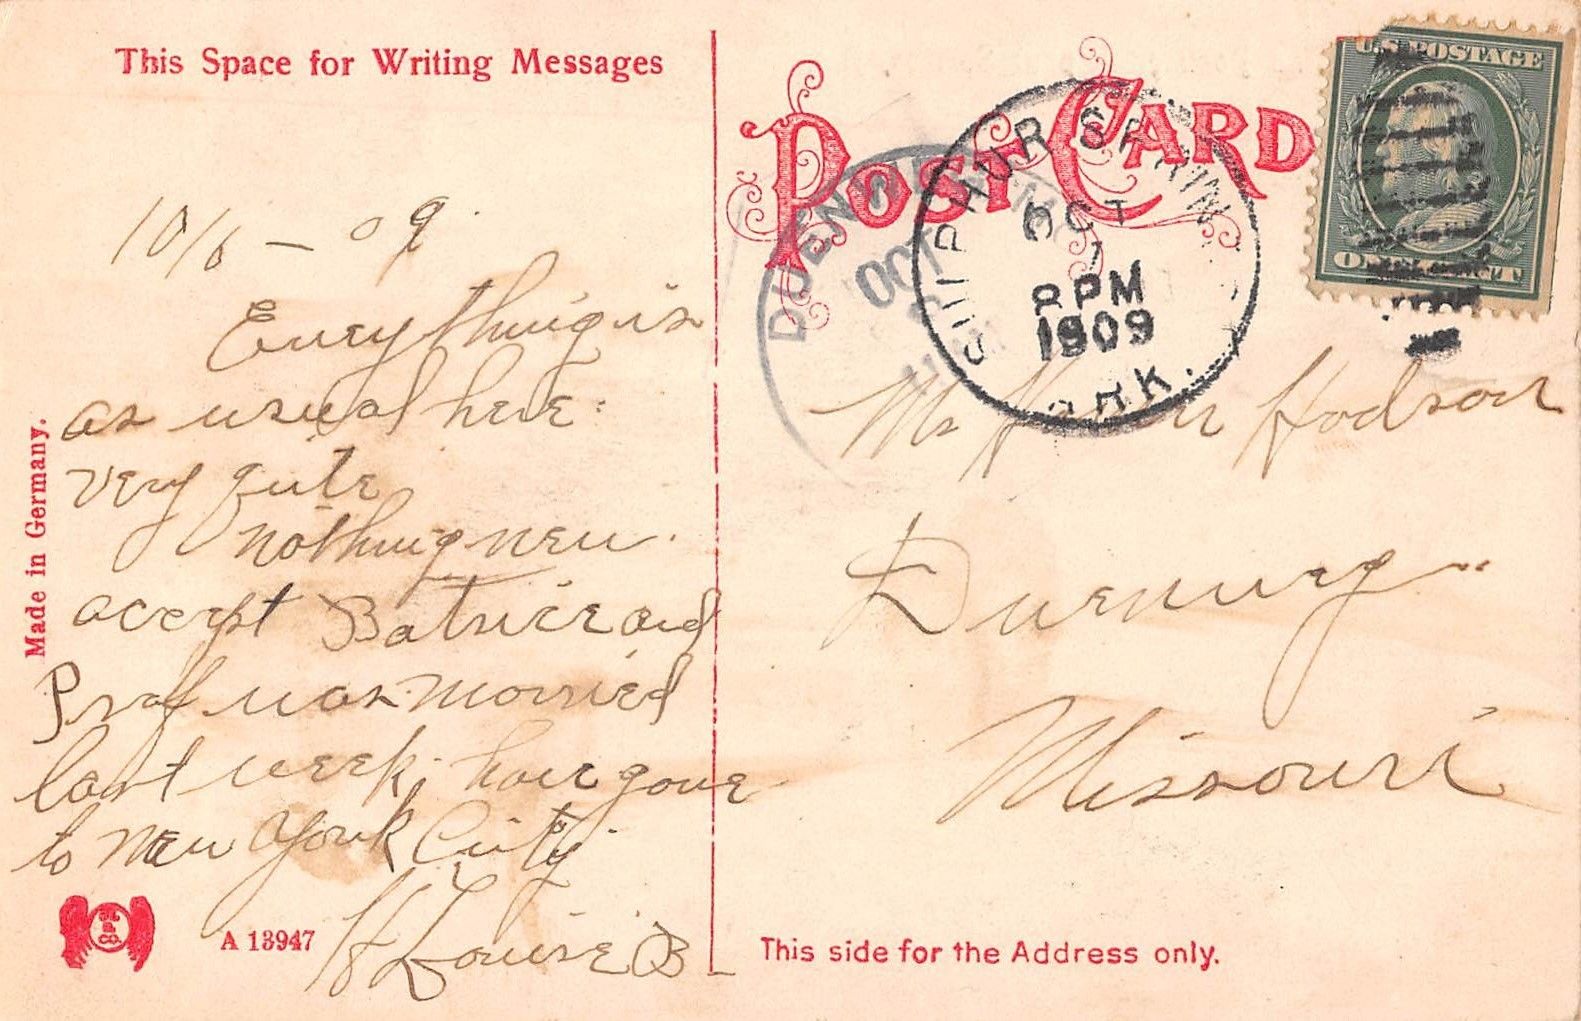 This Space for Writing Messages
POST CARD
U.S. POSTAGE
ONE CENT
DUENWEG MO.
OCT
SULPHUR SPRINGS
OCT
7
8 PM
1909
ARK.
10/6 - 09.
Everything is
as usual here:
very quite
nothing new.
accept Batrice and
Prof was married
last week, have gone
to New York City.
Louise B
Mr Hodson
Duenweg
Missouri
Made in Germany.
A 13947
This side for the Address only.